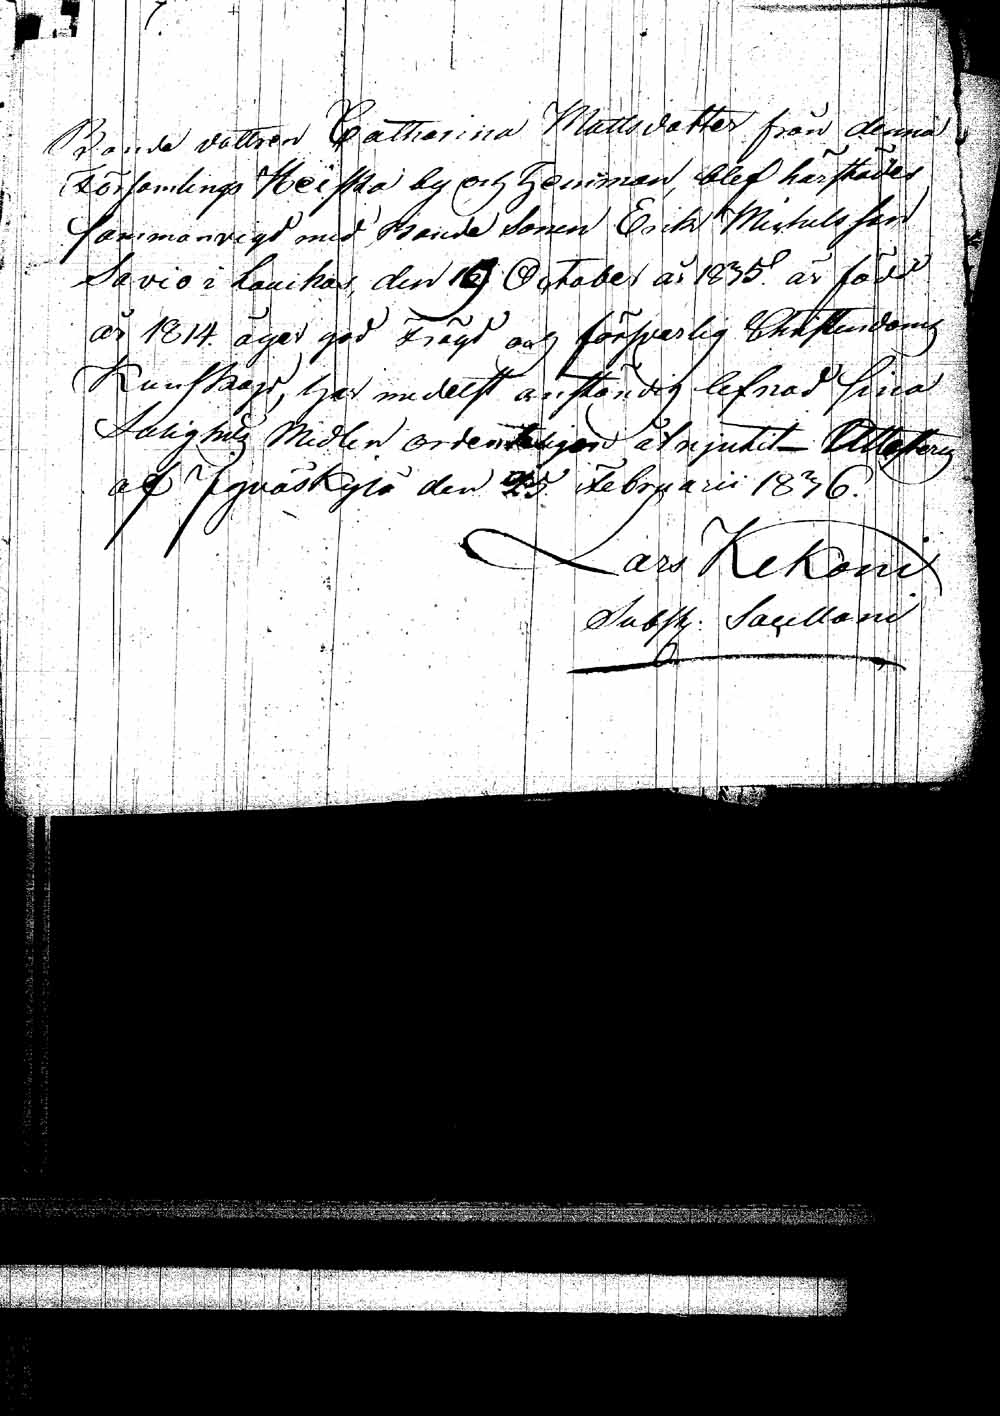 Bonde dottren Catharina Mattsdotter från denna
Församlings Keiska by och hemman, blef härstädes
sammanvigd med Bonde Sonen Erik Michelsson
Savio i Laukas, den 16 October år 1835. är född
år 1814. äger god Frägd och försvarlig Christendoms
Kunskap, har medelst anständig lefnad sina
Salighets Medlen ordenteligen åtnjutit – Attesteras
af Jyväskylä den 25 Februarii 1836.
Lars Kekoni
Subst: Sacellani